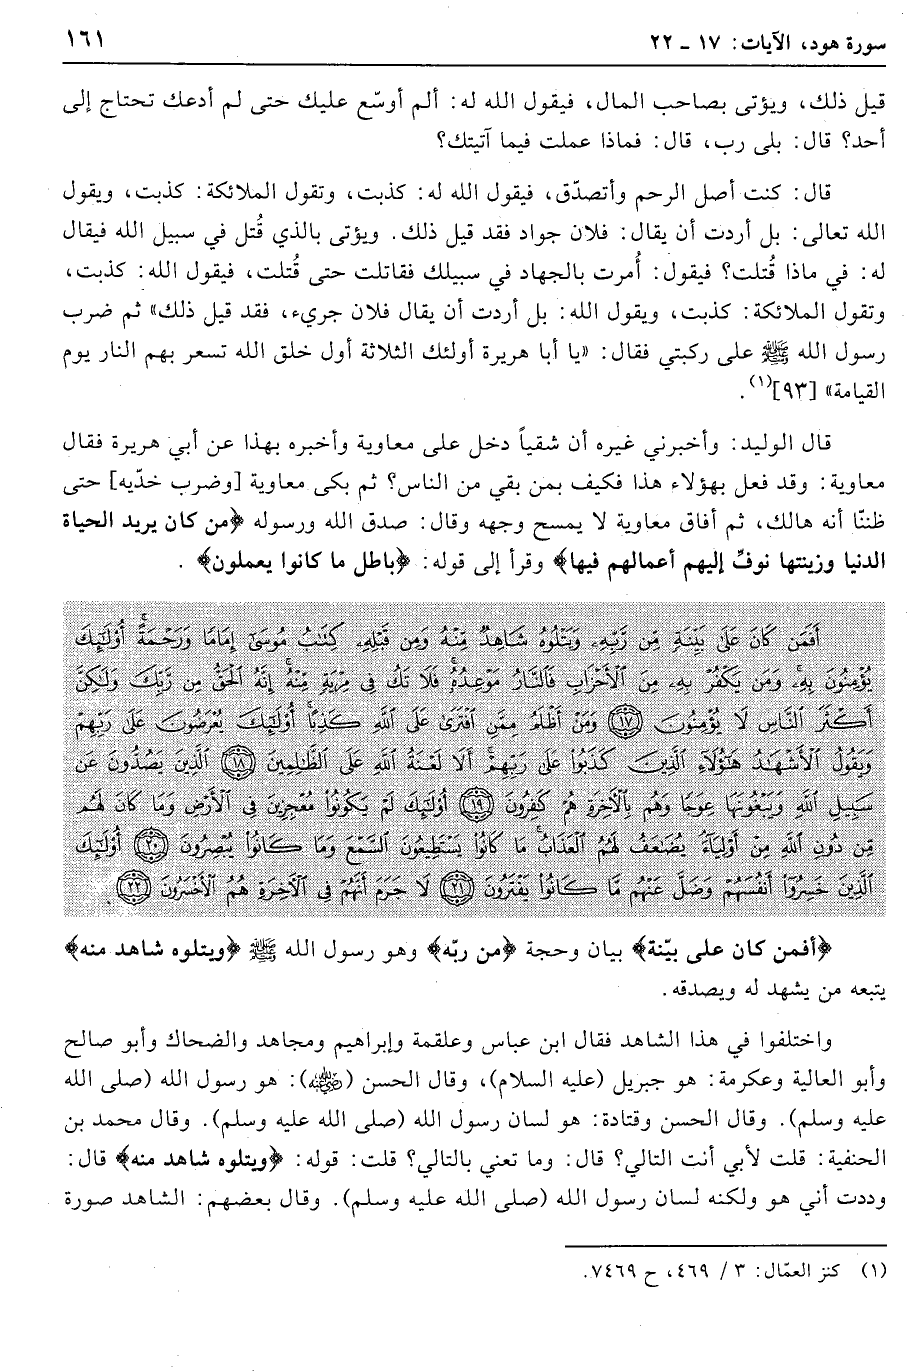 سورة هود، الآيات: ١٧ ـ ٢٢
١٦١
قيل ذلك، ويؤتى بصاحب المال، فيقول الله له: ألم أوسّع عليك حتى لم أدعك تحتاج إلى
أحد؟ قال: بلى رب، قال: فماذا عملت فيما آتيتك؟
قال: كنت أصل الرحم وأتصدّق، فيقول الله له: كذبت، وتقول الملائكة: كذبت، ويقول
الله تعالى: بل أردت أن يقال: فلان جواد فقد قيل ذلك. ويؤتى بالذي قُتل في سبيل الله فيقال
له: في ماذا قُتلت؟ فيقول: أُمرت بالجهاد في سبيلك فقاتلت حتى قُتلت، فيقول الله: كذبت،
وتقول الملائكة: كذبت، ويقول الله: بل أردت أن يقال فلان جريء، فقد قيل ذلك» ثم ضرب
رسول الله ﷺ على ركبتي فقال: «يا أبا هريرة أولئك الثلاثة أول خلق الله تسعر بهم النار يوم
القيامة» [٩٣]⁽¹⁾.
قال الوليد: وأخبرني غيره أن شقياً دخل على معاوية وأخبره بهذا عن أبي هريرة فقال
معاوية: وقد فعل بهؤلاء هذا فكيف بمن بقي من الناس؟ ثم بكى معاوية [وضرب خدّيه] حتى
ظننّا أنه هالك، ثم أفاق معاوية لا يمسح وجهه وقال: صدق الله ورسوله ﴿من كان يريد الحياة
الدنيا وزينتها نوفّ إليهم أعمالهم فيها﴾ وقرأ إلى قوله: ﴿باطل ما كانوا يعملون﴾ .
أَفَمَن كَانَ عَلَىٰ بَيِّنَةٍ مِّن رَّبِّهِۦ وَيَتْلُوهُ شَاهِدٌ مِّنْهُ وَمِن قَبْلِهِۦ كِتَٰبُ مُوسَىٰٓ إِمَامًا وَرَحْمَةً ۚ أُو۟لَٰٓئِكَ
يُؤْمِنُونَ بِهِۦ ۚ وَمَن يَكْفُرْ بِهِۦ مِنَ ٱلْأَحْزَابِ فَٱلنَّارُ مَوْعِدُهُۥ ۚ فَلَا تَكُ فِى مِرْيَةٍ مِّنْهُ ۚ إِنَّهُ ٱلْحَقُّ مِن رَّبِّكَ وَلَٰكِنَّ
أَكْثَرَ ٱلنَّاسِ لَا يُؤْمِنُونَ ﴿١٧﴾ وَمَنْ أَظْلَمُ مِمَّنِ ٱفْتَرَىٰ عَلَى ٱللَّهِ كَذِبًا ۚ أُو۟لَٰٓئِكَ يُعْرَضُونَ عَلَىٰ رَبِّهِمْ
وَيَقُولُ ٱلْأَشْهَٰدُ هَٰٓؤُلَآءِ ٱلَّذِينَ كَذَبُوا۟ عَلَىٰ رَبِّهِمْ ۚ أَلَا لَعْنَةُ ٱللَّهِ عَلَى ٱلظَّٰلِمِينَ ﴿١٨﴾ ٱلَّذِينَ يَصُدُّونَ عَن
سَبِيلِ ٱللَّهِ وَيَبْغُونَهَا عِوَجًا وَهُم بِٱلْءَاخِرَةِ هُمْ كَٰفِرُونَ ﴿١٩﴾ أُو۟لَٰٓئِكَ لَمْ يَكُونُوا۟ مُعْجِزِينَ فِى ٱلْأَرْضِ وَمَا كَانَ لَهُم
مِّن دُونِ ٱللَّهِ مِنْ أَوْلِيَآءَ ۘ يُضَٰعَفُ لَهُمُ ٱلْعَذَابُ ۚ مَا كَانُوا۟ يَسْتَطِيعُونَ ٱلسَّمْعَ وَمَا كَانُوا۟ يُبْصِرُونَ ﴿٢٠﴾ أُو۟لَٰٓئِكَ
ٱلَّذِينَ خَسِرُوٓا۟ أَنفُسَهُمْ وَضَلَّ عَنْهُم مَّا كَانُوا۟ يَفْتَرُونَ ﴿٢١﴾ لَا جَرَمَ أَنَّهُمْ فِى ٱلْءَاخِرَةِ هُمُ ٱلْأَخْسَرُونَ ﴿٢٢﴾
﴿أفمن كان على بيّنة﴾ بيان وحجة ﴿من ربّه﴾ وهو رسول الله ﷺ ﴿ويتلوه شاهد منه﴾
يتبعه من يشهد له ويصدقه.
واختلفوا في هذا الشاهد فقال ابن عباس وعلقمة وإبراهيم ومجاهد والضحاك وأبو صالح
وأبو العالية وعكرمة: هو جبريل (عليه السلام)، وقال الحسن (رضي الله عنه): هو رسول الله (صلى الله
عليه وسلم). وقال الحسن وقتادة: هو لسان رسول الله (صلى الله عليه وسلم). وقال محمد بن
الحنفية: قلت لأبي أنت التالي؟ قال: وما تعني بالتالي؟ قلت: قوله: ﴿ويتلوه شاهد منه﴾ قال:
وددت أني هو ولكنه لسان رسول الله (صلى الله عليه وسلم). وقال بعضهم: الشاهد صورة
(١) كنز العمّال: ٣ / ٤٦٩، ح ٧٤٦٩.